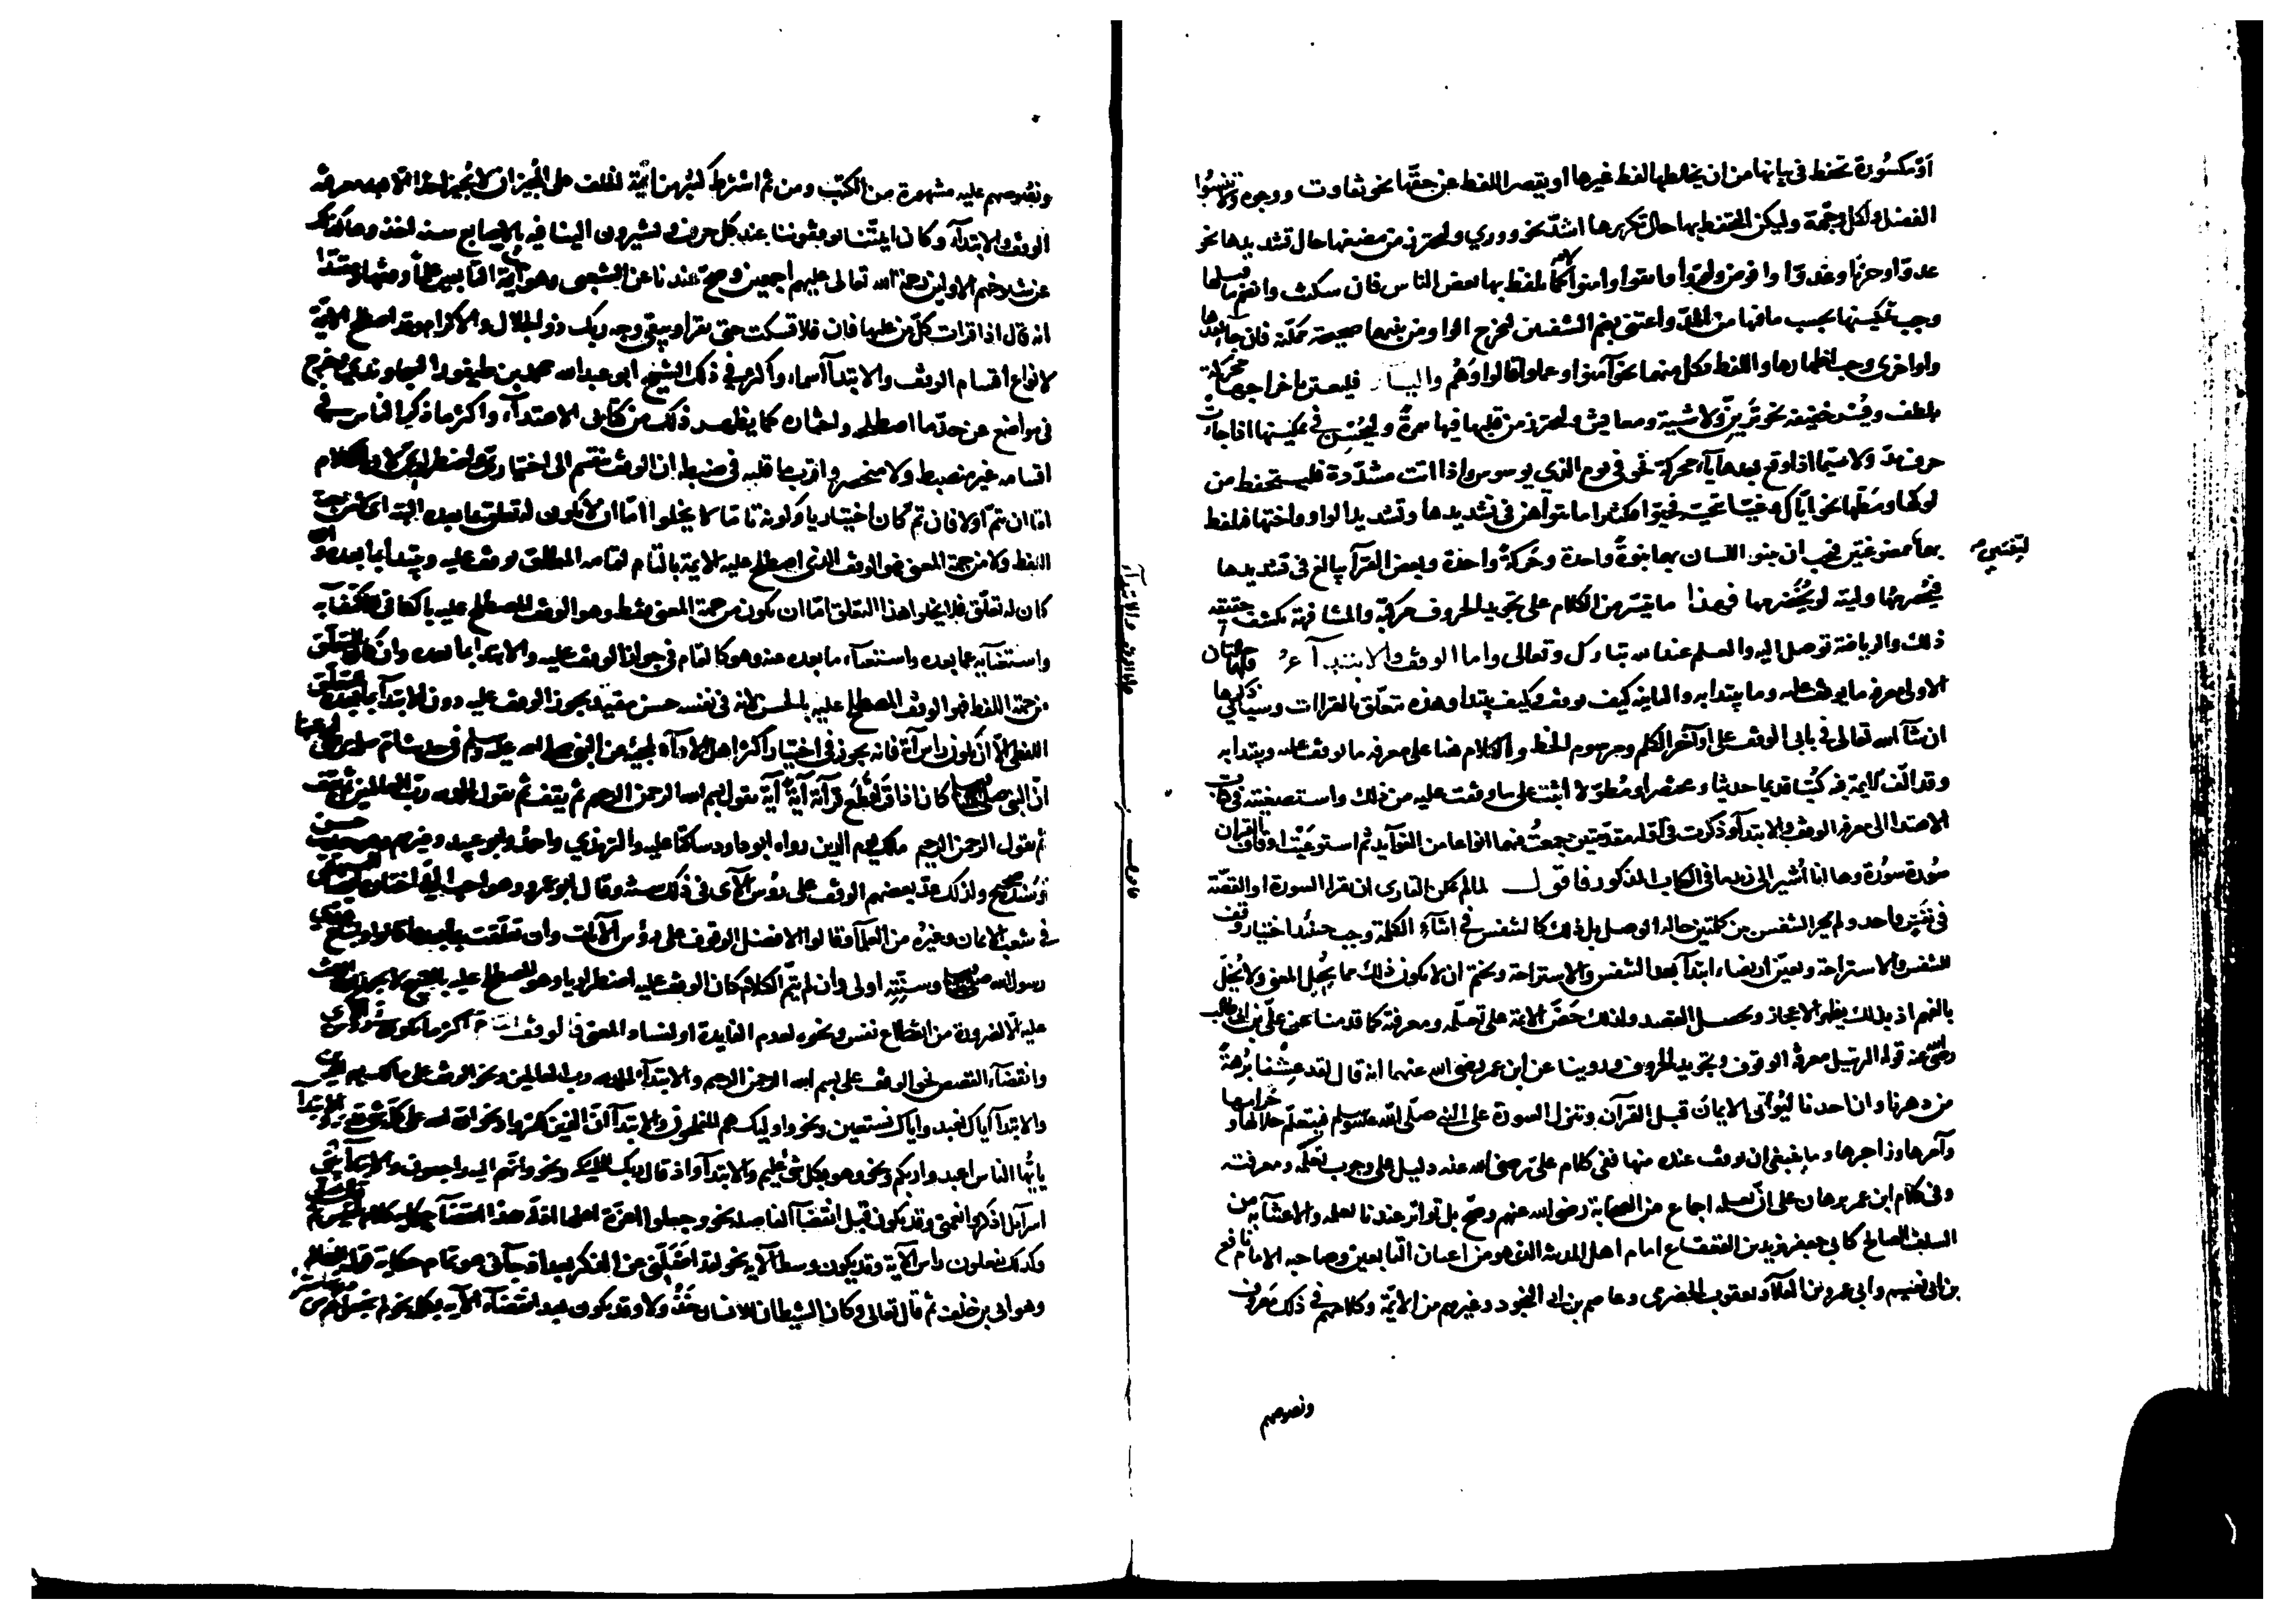 أو مكسورة تحفظ في بيانها من ان يخالطها لفظ غيرها او يقصر اللفظ عن حقها نحو تفاوت ووجوه ولا تنسوا
الفضل ولكل وجهة وليكن التحفظ بها حال تكريرها اشدّ نحو ووري وليحترز من مضغها حال تشديدها نحو
عدوّا وحزنا وغدوّا وافوض ولوّوا واتقوا وآمنوا كما يلفظ بها بعض الناس فان سكنت وانضم ما قبلها
وجب تمكينها بحسب ما فيها من المدّ واعتنى بضم الشفتين لتخرج الواو من بينهما صحيحة ممكّنة فان جاء بعدها
واو اخرى وجب اظهارها واللفظ بكل منهما نحو آمنوا وعملوا قالوا وهم والياء فليعتن باخراجها محركة
بلطف ويُسر خفيفة نحو تَرَيِنّ ولاشية ومعايش وليحترز من قلبها فيها همزةً وليُحسَن في تمكينها اذا جاءت
حرف مدّ ولا سيّما اذا وقع بعدها ياء محركة نحو في يوم الذي يوسوس واذا اتت مشدّدة فليتحفظ من
لوكها ومطّها نحو ايّاك وعتيّا تحيّة فحيّوا فكثيرا ما يتواهن في تشديدها وتشديد الواو واختها فيلفظ
بهما ممضوغتين فيجب ان ينبو اللسان بهما نبوةً واحدة وحركةً واحدة وبعض القرآء يبالغ في تشديدها
لينتين
فيحصرمها وليته لو يُحَصرمها فهذا ما تيسّر من الكلام على تجويد الحروف مركبّة والمشافهة تكشف حقيقة
ذلك والرياضة توصل اليه والعلم عند الله تبارك وتعالى واما الوقف والابتدآء فلهما حالتان
الاولى معرفه ما يوقف عليه وما يبتدا به والثانية كيف يوقف وكيف يبتدا وهذه تتعلّق بالقراات وسيأتي ذكرها
ان شآء الله تعالى في بابي الوقف على اواخر الكلم ومرسوم الخط والكلام هنا على معرفه ما يوقف عليه ويبتدا به
وقد الّف الأيمة فيه كُتبا قديما وحديثا ومختصرا ومُطوّلا اتيت على ما وقفت عليه من ذلك واستقصيته في كتاب
الاهتدا الى معرفه الوقف والابتدآء وذكرت في اوّله مقدمتين جمعتُ فيهما انواعا من الفوآيد ثم استوعَبْت اوقاف القرآن
سُورة سُورة وها انا أشير الى زبد ما في الكتاب المذكور فاقول لما لم يمكن القاري ان يقرا السورة او القصّة
في نَفَس واحد ولم يجز التنفس بين كلمتين حالة الوصل بل ذلك كالتنفس في اثنآء الكلمة وجب حينئذ اختيار وقف
للتنفس والاستراحة وتعيّن ارتضاء ابتدآء بعد التنفس والاستراحة وتحتم ان لا يكون ذلك مما يُحيل المعنى ولا يُخلّ
بالفهم اذ بذلك يظهر الاعجاز ويحصل القصد ولذلك حضّ الايمة على تعلّمه ومعرفته كما قدمنا عن عليّ بن ابي طالب
رضى الله عنه قوله الترتيل معرفة الوقوف وتجويد الحروف وروينا عن ابن عمر رضى الله عنهما انه قال لقد عِشْنا بُرهةً
من دهرنا وان احدنا ليُوتى الايمان قبل القرآن وتنزل السورة على النبي صلّى الله عليه وسلم فيتعلّم حلالها وحرامها
وآمرها وزاجرها وما ينبغي ان يوقف عنده منها ففي كلام عليّ رضى الله عنه دليل على وجوب تعلّمه ومعرفته
وفي كلام ابن عمر برهان على انّ تعلمه اجماع من الصحابة رضى الله عنهم وصحّ بل تواتر عندنا تعلمه والاعتنآء به من
السلف الصالح كابي جعفر يزيد بن القعقاع امام اهل المدينة الذي هو من اعيان التابعين وصاحبه الامام نافع
بن ابي نعيم وابي عمرو بن العلآء ويعقوب الحضرمي وعاصم بن ابي النجود وغيرهم من الايمّة وكلامهم في ذلك معروف
ونصوصهم
ونصُوصهم عليه مشهورة من الكتب ومن ثم اشترط كثير من ايّمة الخلف على المُجيز ان لا يُجيز احدا الّا بعد معرفة
الوقف والابتدآء وكان ايمّتنا يوقفوننا عند كل حرف ويشيرون الينا فيه بالاصابع سنة اخذوها كذلك
عن شيوخهم الاولين رحمة الله تعالى عليهم اجمعين وصحّ عندنا عن الشعبي وهو من آيمة التابعين علماً وفقها ومقتدا
انه قال اذا قرات كلّ من عليها فان فلا تسكت حتى تقرا ويبقى وجه ربك ذو الجلال والاكرام وقد اصطلح الايمّة
لانواع اقسام الوقف والابتدآء اسماء واكثر في ذلك الشيخ ابو عبدالله محمد بن طيفور السجاوندي وخرج
في مواضع عن حدّ ما اصطلحه واختاره كما يظهر ذلك من كتابي الاهتدآء واكثر ما ذكر الناس في
اقسامه غير منضبط ولا منحصر واقرب ما قلته في ضبطه ان الوقف ينقسم الى اختياري واضطراري لان الكلام
اما ان يتم اولا فان تم كان اختياريا وكونه تاما لا يخلوا امّا ان لا يكون له تعلّق بما بعده البتة اى لا من جهة
اللفظ ولا من جهة المعنى فهو الوقف الذي اصطلح عليه الايمة بالتام لتمامه المطلق يوقف عليه ويبتدا بما بعده وان
كان له تعلّق فلا يخلوا هذا التعلق امّا ان يكون من جهة المعنى فقط وهو الوقف المصطلح عليه بالكافي للاكتفآء به
واستغنآيه عما بعده واستغنآء ما بعده عنه وهو كالتام في جواز الوقف عليه والابتدا بما بعده وان كان التعلّق
من جهة اللفظ فهو الوقف المصطلح عليه بالحسن لانه في نفسه حسن مفيد يجوز الوقف عليه دون الابتدآء بما بعده للتعلّق
اللفظي الّا ان يكون راس آية فانه يجوز في اختيار اكثر اهل الادآء لمجيئه عن النبي صلى الله عليه وسلم في حديث امّ سلمة رضى الله عنها
انّ النبي صلى الله عليه وسلم كان اذا قَرأ قطّع قرآته آيةً آية يقول بسم الله الرحمن الرحيم ثم يقف ثم يقول الحمد لله ربّ العالمين ثم يقف
ثم يقول الرحمن الرحيم ملك يوم الدين رواه ابو داود ساكتا عليه والترمذي واحمد وابو عبيد وغيرهم وهو حديث حسن
وسنده صحيح ولذلك عدّ بعضهم الوقف على رؤس الآى في ذلك سنة وقال ابو عمرو وهو احب الىّ واختاره ايضا البيهقي
في شعب الايمان وغيره من العلمآء وقالوا الافضل الوقوف على رؤس الآيات وان تعلّقت بما بعدها قالوا واتباع هدي
رسول الله صلى الله عليه وسلم وسنّته اولى وان لم يتمّ الكلام كان الوقف عليه اضطراريا وهو المصطلح عليه بالقبيح لا يجوز تعمد الوقف
عليه الّا لضرورة من انقطاع نفس ونحوه لعدم الفايدة او لفساد المعنى فالوقف التام اكثر ما يكون في رؤس الآى
وانقضآء القصص نحو الوقف على بسم الله الرحمن الرحيم والابتدآء الحمد لله رب العالمين ونحو الوقف على مالك يوم الدين
والابتدآء اياك نعبد واياك نستعين ونحو واوليك هم المفلحون والابتدآء انّ الذين كفروا ونحو ان الله على كل شى قدير والابتدآ
يا ايّها الناس اعبدوا ربكم ونحو وهو بكل شى عليم والابتدآء واذ قال ربك للملئكة ونحو وانّهم اليه راجعون والابتدآء يا بني
اسرآئيل اذكروا نعمتى وقد يكون قبل انقضآء الفاصلة نحو وجعلوا اعزة اهلها اذلّة هذا انقضآء حكاية كلام بلقيس ثم قال تعالى
وكذلك يفعلون راس الآية وقد يكون وسط الآية نحو لقد اضَلّني عن الذكر بعد اذ جآءني هو تمام حكاية قول الظالم
وهو ابي بن خلف ثم قال تعالى وكان الشيطان للانسان خذُولا وقد يكون بعد انقضآء الآية بكلمة نحو لم نجعل لهم من دونها سترا